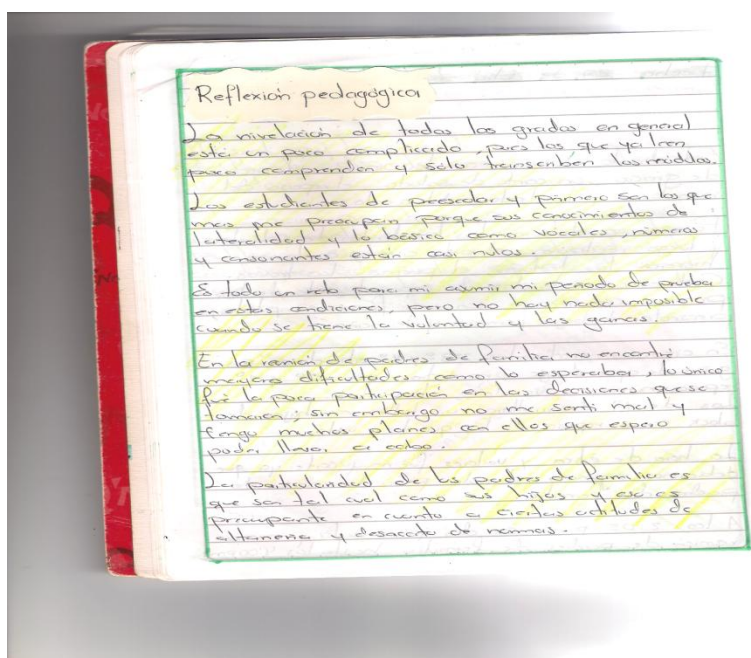 Reflexión pedagógica
La nivelación de todos los grados en general
está un poco complicado, pues los que ya leen
poco comprenden y solo transcriben los módulos.
Los estudiantes de preescolar y primero son los que
mas me preocupan porque sus conocimientos de
lateralidad y lo básico como vocales, números
y consonantes están casi nulos.
Es todo un reto para mi asumir mi periodo de prueba
en estas condiciones, pero no hay nada imposible
cuando se tiene la voluntad y las ganas.
En la reunión de padres de familia no encontré
mayores dificultades como lo esperaba, lo único
fué la poca participación en las decisiones que se
tomaron; sin embargo no me sentí mal y
tengo muchos planes con ellos que espero
poder llevar a cabo.
La particularidad de los padres de familia es
que son tal cual como sus hijos y eso es
preocupante en cuanto a ciertas actitudes de
altanería y desacato de normas.